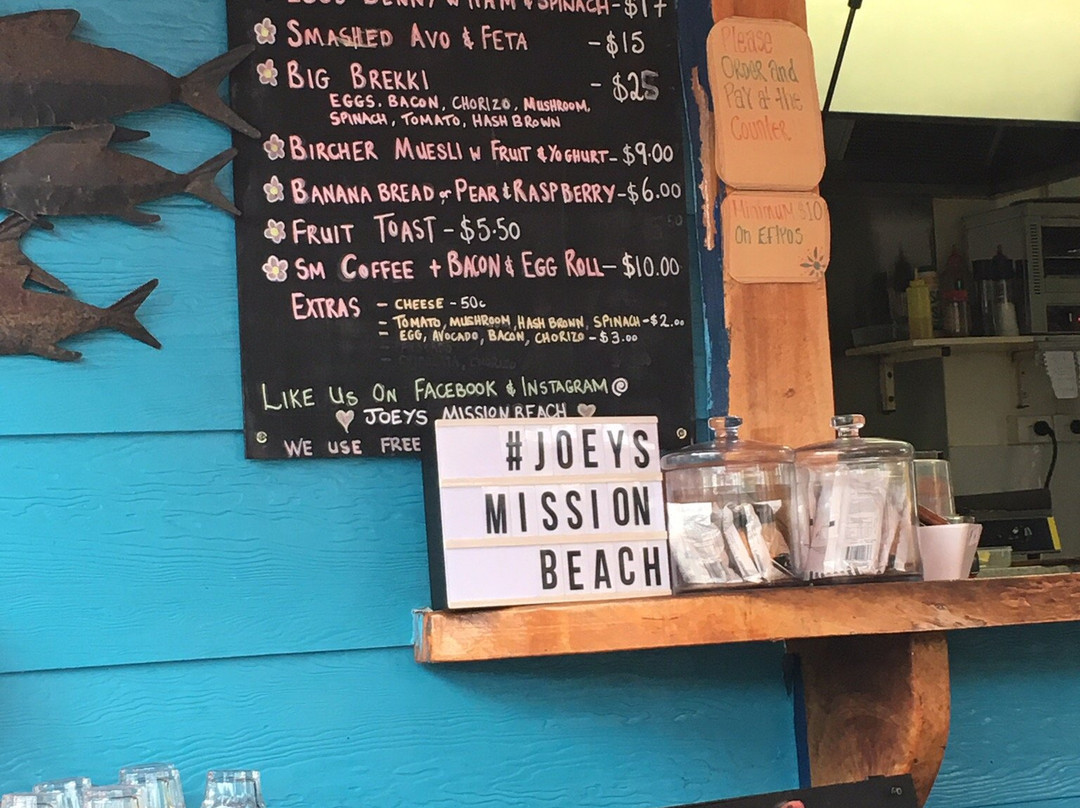 EGGS BENNY W HAM & SPINACH-$17
SMASHED AVO & FETA -$15
BIG BREKKI - $25
EGGS, BACON, CHORIZO, MUSHROOM,
SPINACH, TOMATO, HASH BROWN
BIRCHER MUESLI W FRUIT & YOGHURT-$9.00
BANANA BREAD or PEAR & RASPBERRY-$6.00
FRUIT TOAST-$5.50
SM COFFEE + BACON & EGG ROLL-$10.00
EXTRAS - CHEESE - 50c
- TOMATO, MUSHROOM, HASH BROWN, SPINACH-$2.00
- EGG, AVOCADO, BACON, CHORIZO - $3.00
LIKE US ON FACEBOOK & INSTAGRAM @
JOEYS MISSION BEACH
WE USE FREE
Please
ORDER and
Pay at the
Counter
Minimum $10
On EFTPOS
#JOEYS
MISSION
BEACH